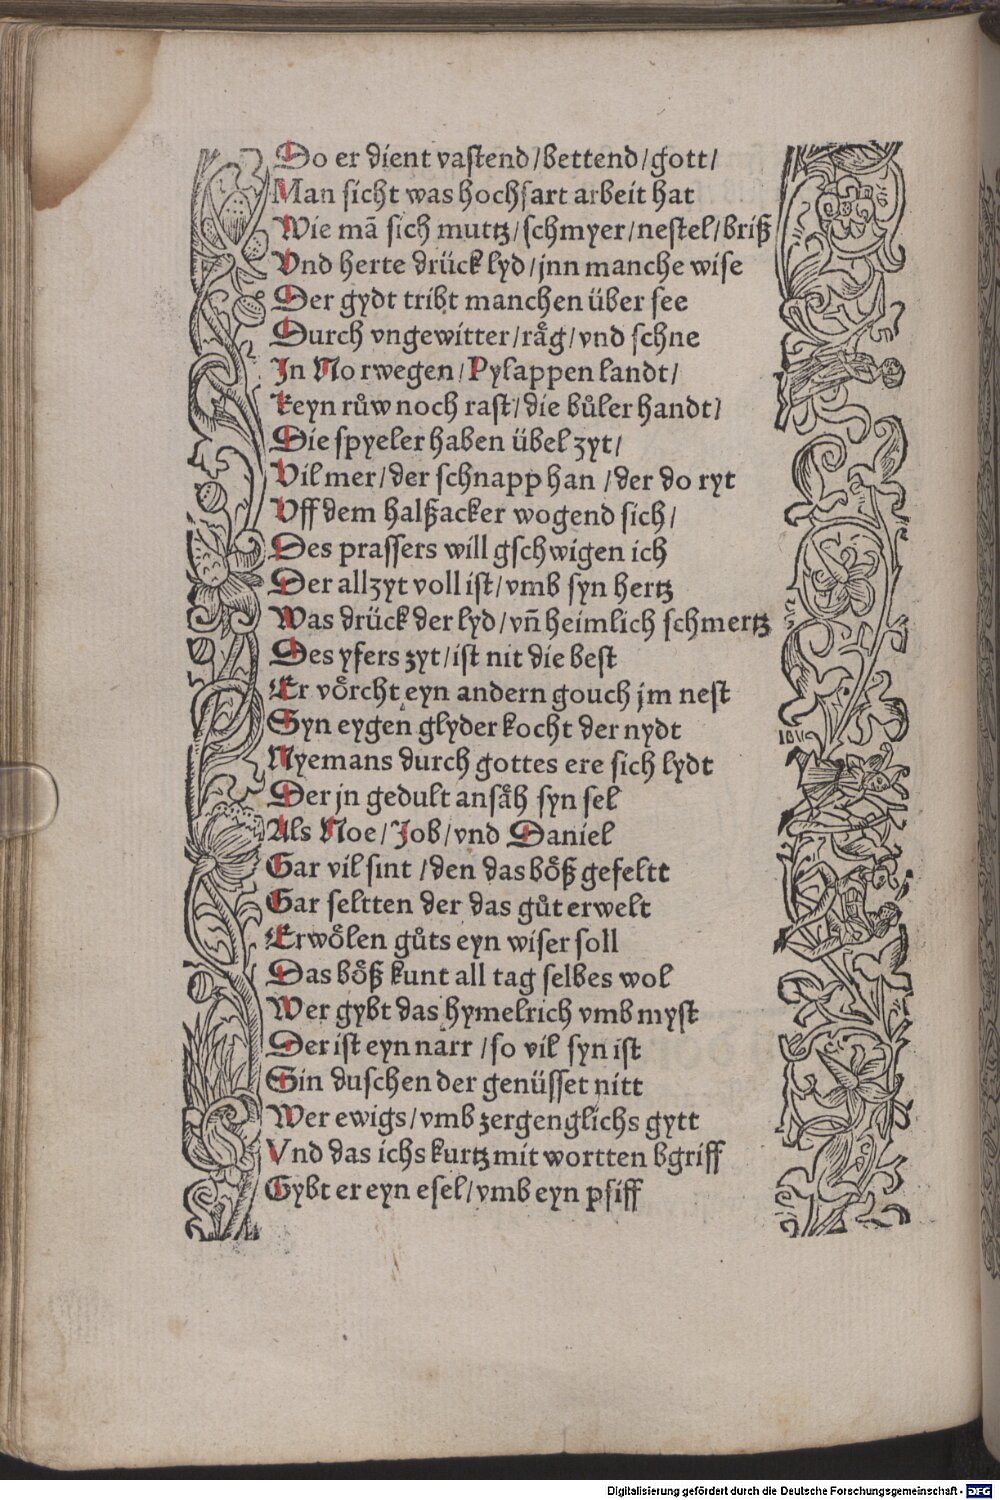 Do er dient vastend/bettend/gott/
Man sicht was hochfart arbeit hat
Wie mã sich muttz/schmyer/nestel/briß
Vnd herte drück lyd/jnn manche wise
Der gydt tribt manchen über see
Durch vngewitter/råg/vnd schne
In Norwegen/Pylappen landt/
Keyn růw noch rast/die bůler handt/
Die spyeler haben übel zyt/
Vil mer/der schnapphan/der do ryt
Vff dem halßacker wogend sich/
Des prassers will gschwigen ich
Der allzyt voll ist/vmb syn hertz
Was drück der lyd/vñ heimlich schmertz
Des yfers zyt/ist nit die best
Er vörcht eyn andern gouch jm nest
Syn eygen glyder kocht der nydt
Nyemans durch gottes ere sich lydt
Der jn gedult ansåh syn sel
Als Noe/Job/vnd Daniel
Gar vil sint/den das böß gefeltt
Gar seltten der das gůt erwelt
Erwölen gůts eyn wiser soll
Das böß kunt all tag selbes wol
Wer gybt das hymelrich vmb myst
Der ist eyn narr/so vil syn ist
Sin duschen der genüsset nitt
Wer ewigs/vmb zergenglichs gytt
Vnd das ichs kurtz mit wortten bgriff
Gybt er eyn esel/vmb eyn pfiff
Digitalisierung gefördert durch die Deutsche Forschungsgemeinschaft - DFG